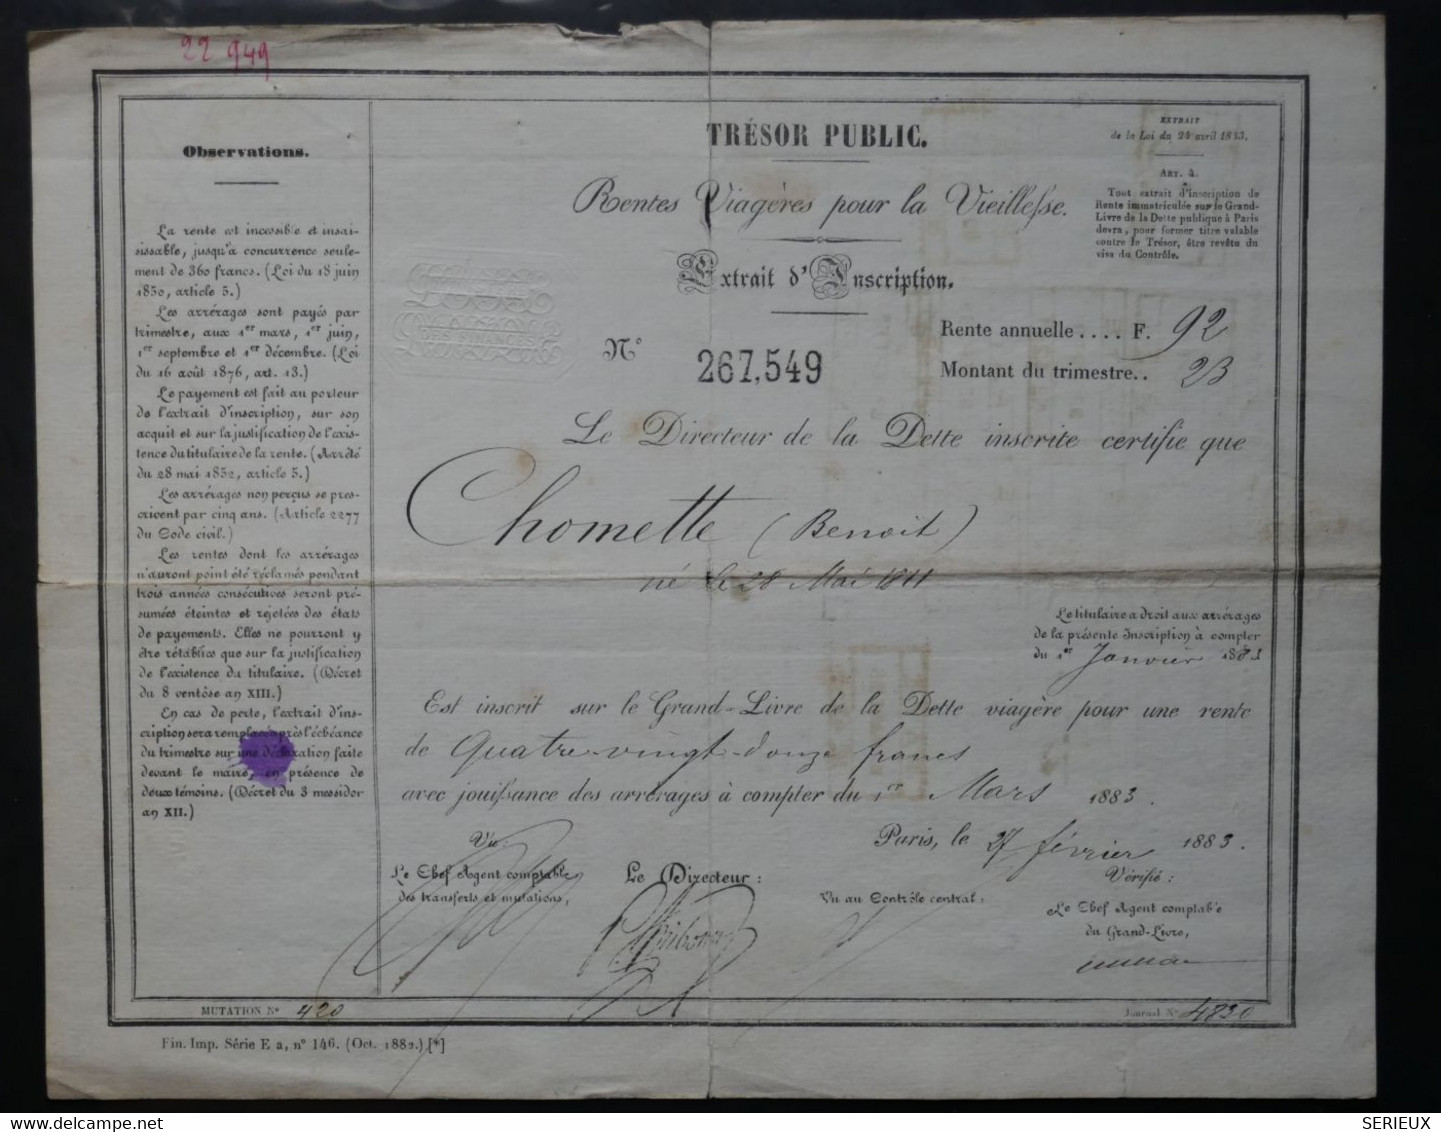 22 949
Observations.
La rente est incessible et insai-
sissable, jusqu'à concurrence seule-
ment de 360 francs. (Loi du 18 juin
1850, article 5.)
Les arrérages sont payés par
trimestre, aux 1er mars, 1er juin,
1er septembre et 1er décembre. (Loi
du 16 août 1876, art. 13.)
Le payement est fait au porteur
de l'extrait d'inscription, sur son
acquit et sur la justification de l'exis-
tence du titulaire de la rente. (Arrêté
du 28 mai 1832, article 5.)
Les arrérages non perçus se pres-
crivent par cinq ans. (Article 2277
du Code civil.)
Les rentes dont les arrérages
n'auront point été réclamés pendant
trois années consécutives seront pré-
sumées éteintes et rejetées des états
de payements. Elles ne pourront y
être rétablies que sur la justification
de l'existence du titulaire. (Décret
du 8 ventôse an XIII.)
En cas de perte, l'extrait d'ins-
cription sera remplacé après l'échéance
du trimestre sur une déclaration faite
devant le maire, en présence de
deux témoins. (Décret du 3 messidor
an XII.)
TRÉSOR PUBLIC.
Rentes Viagères pour la Vieillesse.
Extrait d'Inscription.
N° 267,549
EXTRAIT
de la Loi du 24 avril 1833.
ART. 4.
Tout extrait d'inscription de
Rente immatriculée sur le Grand-
Livre de la Dette publique à Paris
devra, pour former titre valable
contre le Trésor, être revêtu du
visa du Contrôle.
Rente annuelle .... F. 92
Montant du trimestre.. 23
Le Directeur de la Dette inscrite certifie que
Chomette (Benoit)
né le 28 Mai 1811
Le titulaire a droit aux arrérages
de la présente Inscription à compter
du 1er Janvier 1883
Est inscrit sur le Grand-Livre de la Dette viagère pour une rente
de Quatre-vingt-douze francs
avec jouissance des arrérages à compter du 1er Mars 1883.
Paris, le 27 février 1883.
Vu:
Le Chef Agent comptable
des transferts et mutations,
Le Directeur :
Vu au Contrôle central :
Vérifié :
Le Chef Agent comptable
du Grand-Livre,
MUTATION N° 420
Journal N° 4830
Fin. Imp. Série E a, n° 146. (Oct. 1882.) [*]
delcampe.net
SERIEUX